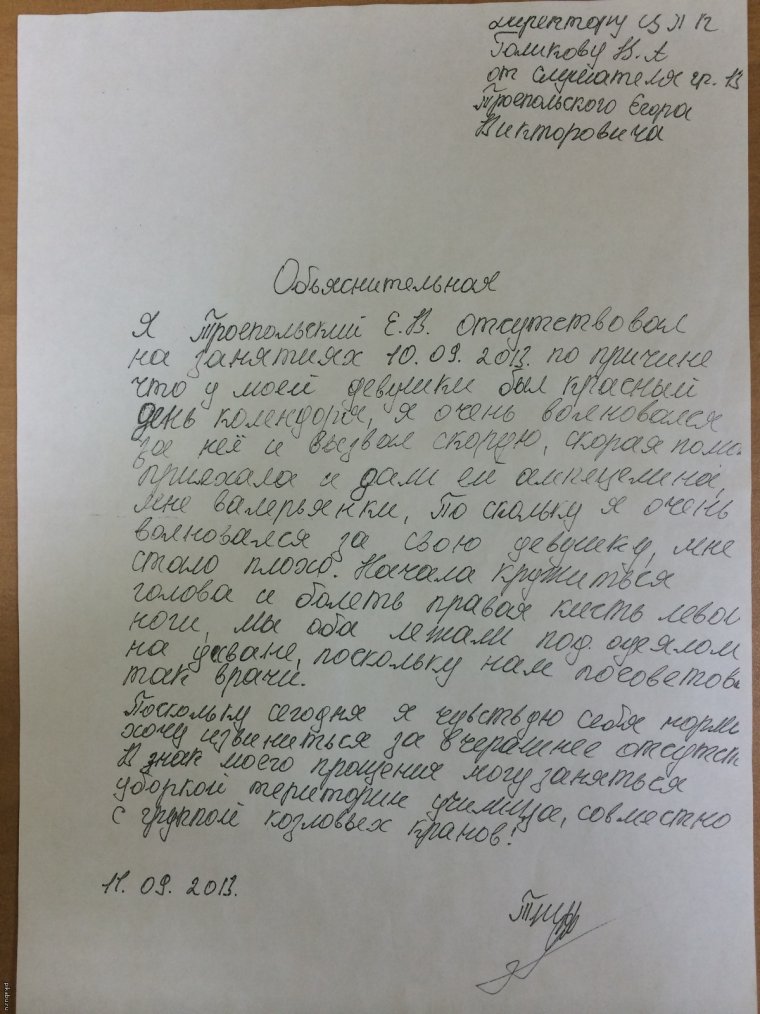 директору ЦПК
Голикову В.А
от слушателя гр. В
Троепольского Егора
Викторовича
Объяснительная
Я Троепольский Е.В. отсутствовал
на занятиях 10.09.2013. по причине
что у моей девушки был красный
день колендоря, я очень волновался
за неё и вызвал скорую, скорая помо
приехала и дали ей ампецелина,
мне валерьянки, По скольку я очень
волновался за свою девушку, мне
стало плохо. Начала кружиться
голова и болеть правая кисть левой
ноги, мы оба лежали под одеялом
на диване, поскольку нам посоветова
так врачи.
Поскольку сегодня я чувствую себя норма
хочу извиниться за вчерашнее отсутст
В знак моего прощения могу заняться
уборкой територии училища, совместно
с группой козловых кранов!
11. 09. 2013.
pikabu.ru